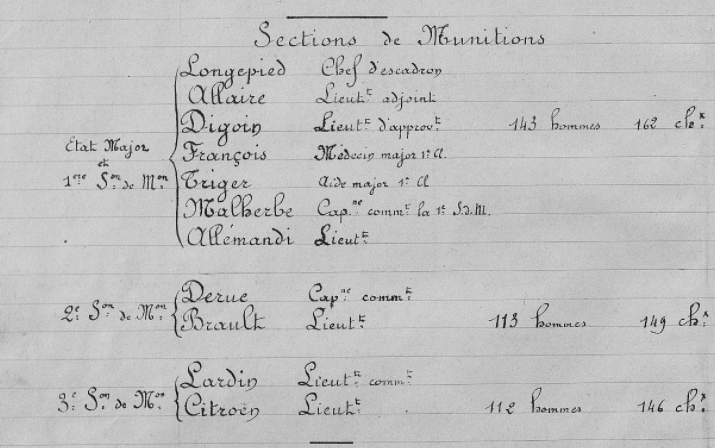 Sections de Munitions
Longepied Chef d'escadron
Allaire Lieut.t adjoint
Digoin Lieut.t d'approv.t 143 hommes 162 ch.x
État Major et 1ere S.on de M.on
François Médecin major 1e Cl.
Triger Aide major 1e Cl
Malherbe Cap.ne comm.t la 1e S.d.M.
Allémandi Lieut.t
2e S.on de M.on
Derue Cap.ne comm.t
Brault Lieut.t 113 hommes 149 ch.x
3e S.on de M.on
Lardin Lieut.t comm.t
Citroën Lieut.t 112 hommes 146 ch.x